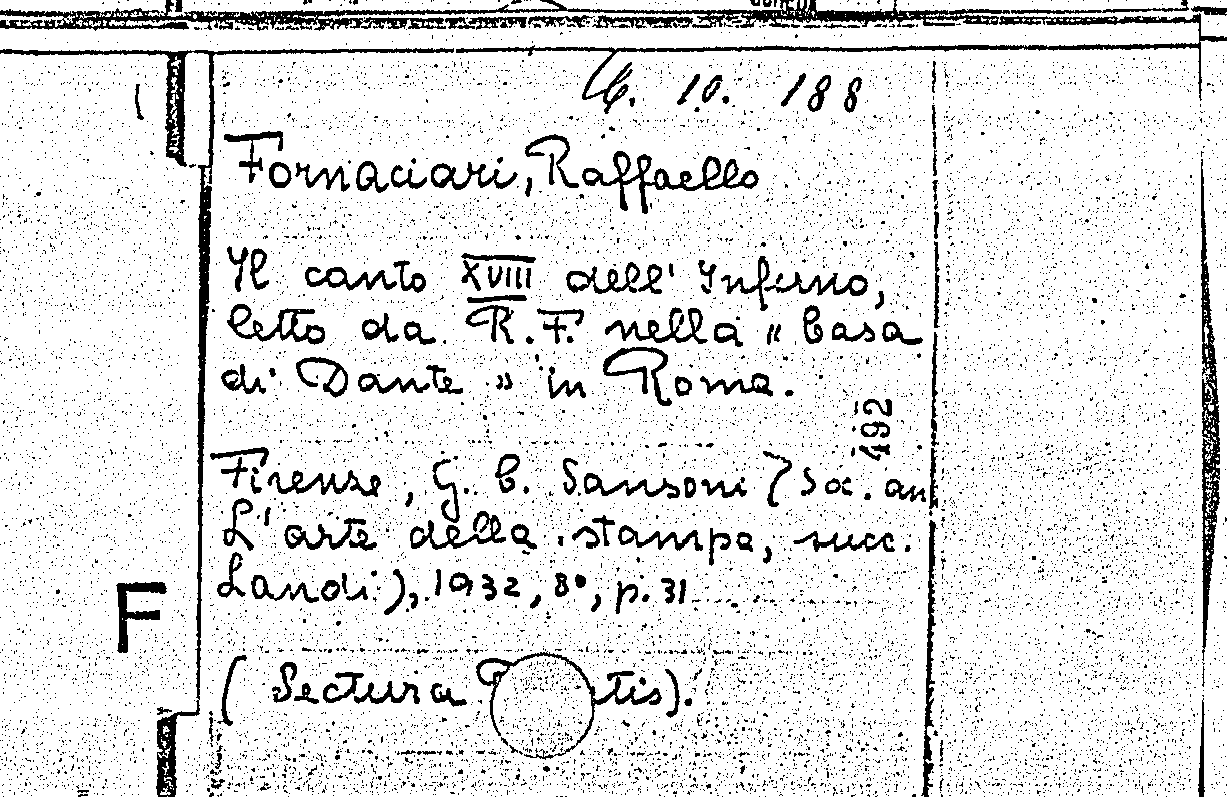 6. 10. 188
Fornaciari, Raffaello
Il canto XVIII dell' Inferno,
letto da R. F. nella « Casa
di Dante » in Roma.
492
Firenze, G. C. Sansoni (Soc. an.
L'arte della stampa, succ.
Landi), 1932, 8°, p. 31
F
(Lectura tis).